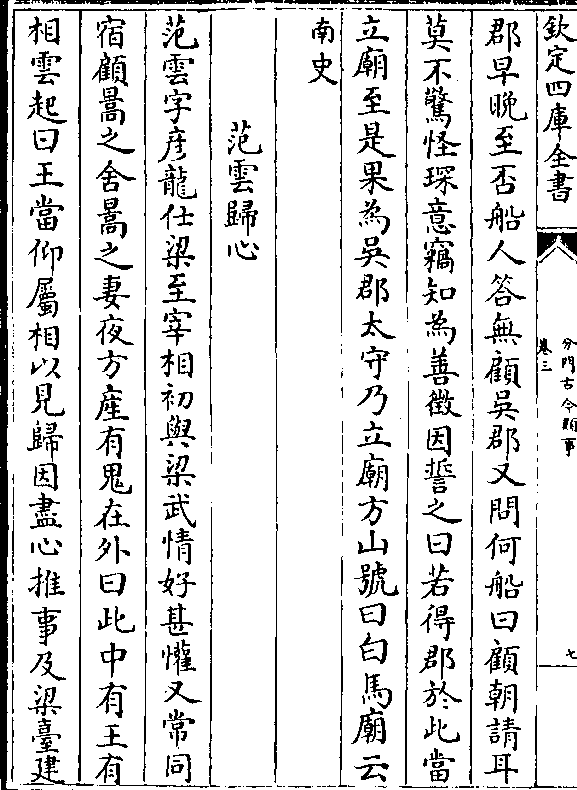 欽定四庫全書
分門古今類事
卷三
七
郡早晚至否船人答無顧吳郡又問何船曰顧朝請耳
莫不驚怪琛意竊知為善徵因誓之曰若得郡於此當
立廟至是果為吳郡太守乃立廟方山號曰白馬廟云
南史
范雲歸心
范雲字彥龍仕梁至宰相初與梁武情好甚懽又常同
宿顧暠之舍暠之妻夜方産有鬼在外曰此中有王有
相雲起曰王當仰屬相以見歸因盡心推事及梁臺建